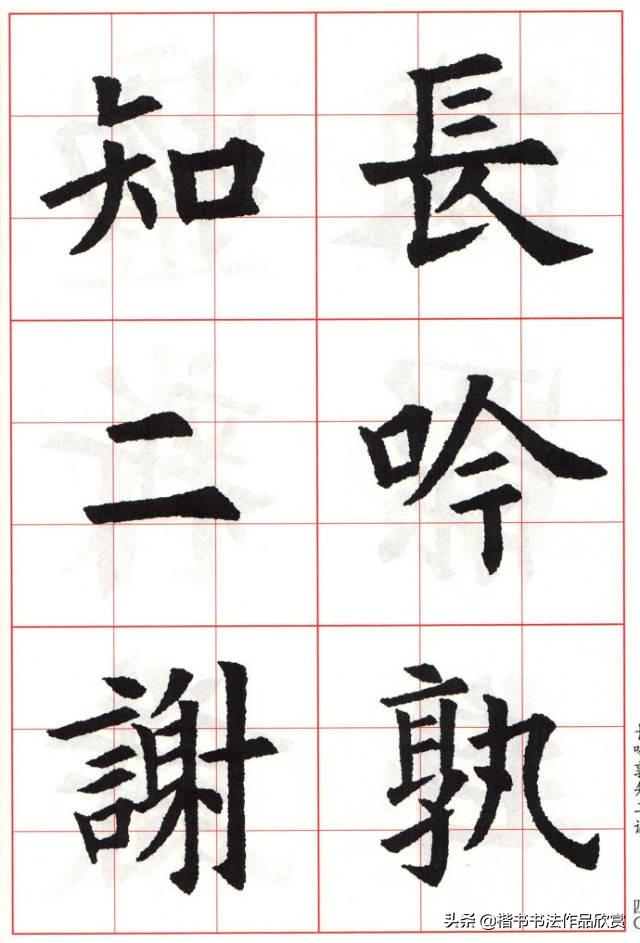 長吟孰
知二謝
四〇
头条 @楷书书法作品欣赏